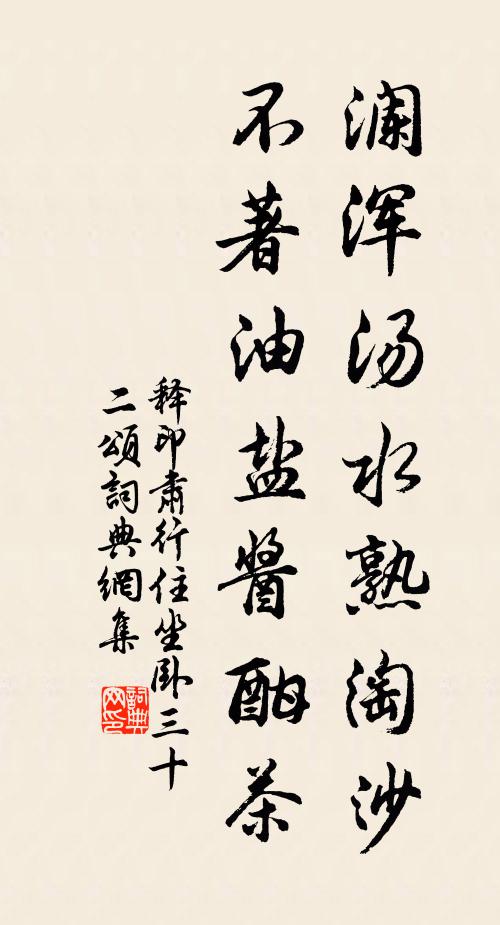 澜浑汤水熟淘沙
不著油盐醬酣茶
释印肃行住坐卧三十
二頌詞典網集
詞典网印